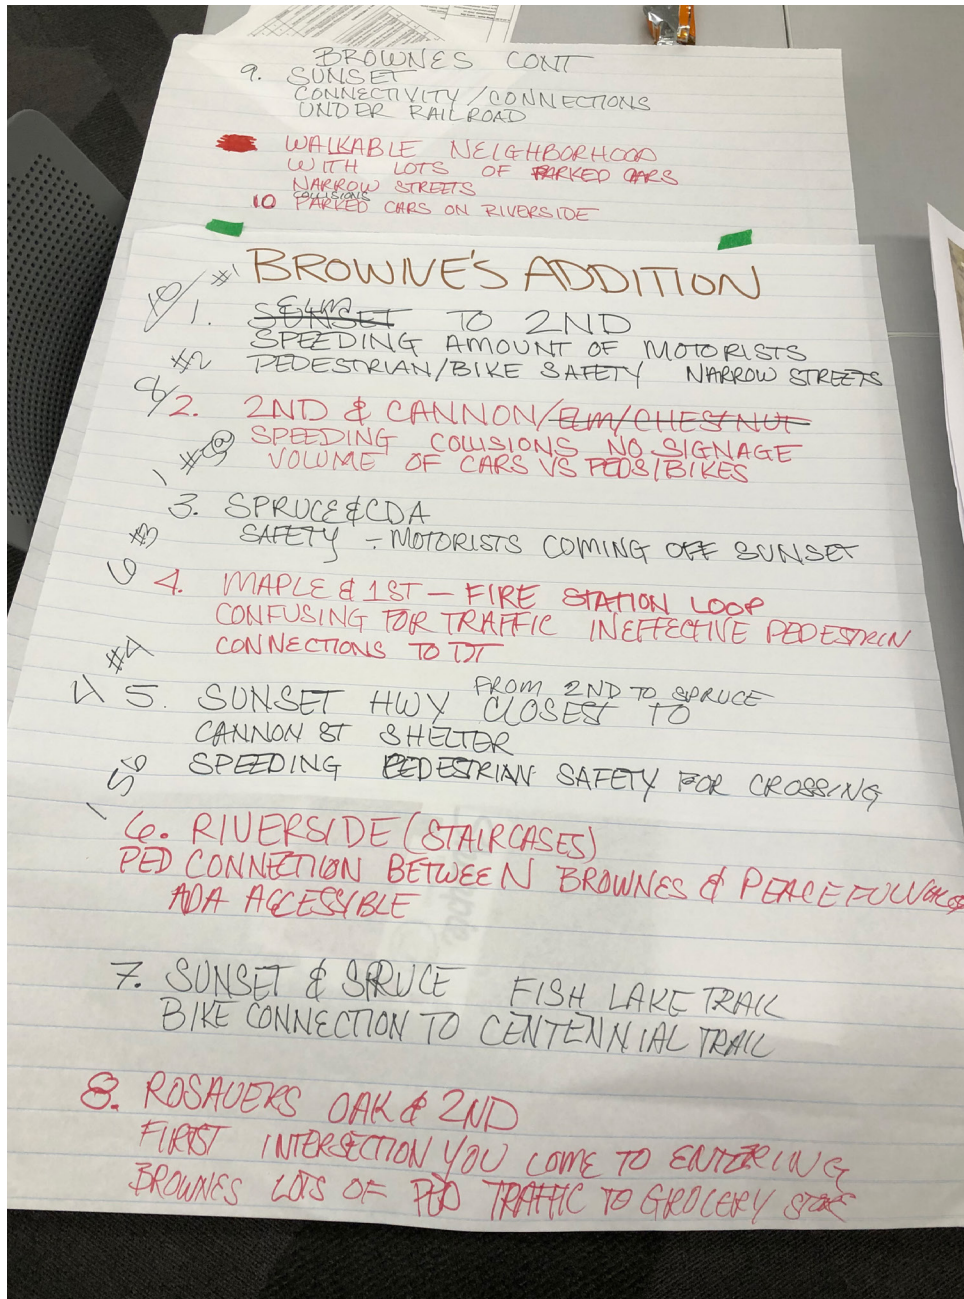 BROWNES CONT
9. SUNSET
CONNECTIVITY/CONNECTIONS
UNDER RAILROAD
WALKABLE NEIGHBORHOOD
WITH LOTS OF PARKED CARS
NARROW STREETS
COLLISIONS
10 PARKED CARS ON RIVERSIDE
BROWNE'S ADDITION
#1
ELM
1. SUNSET TO 2ND
SPEEDING AMOUNT OF MOTORISTS
#2 PEDESTRIAN/BIKE SAFETY NARROW STREETS
2. 2ND & CANNON/ELM/CHESTNUT
SPEEDING COLLISIONS NO SIGNAGE
VOLUME OF CARS VS PEDS/BIKES
3. SPRUCE & CDA
#3 SAFETY - MOTORISTS COMING OFF SUNSET
6 4. MAPLE & 1ST - FIRE STATION LOOP
CONFUSING FOR TRAFFIC INEFFECTIVE PEDESTRIN
#4 CONNECTIONS TO DT
FROM 2ND TO SPRUCE
4 5. SUNSET HWY CLOSEST TO
CANNON ST SHELTER
SPEEDING PEDESTRIAN SAFETY FOR CROSSING
6. RIVERSIDE (STAIRCASES)
PED CONNECTION BETWEEN BROWNES & PEACEFUL
ADA ACCESSIBLE
7. SUNSET & SPRUCE FISH LAKE TRAIL
BIKE CONNECTION TO CENTENNIAL TRAIL
8. ROSAUERS OAK & 2ND
FIRST INTERSECTION YOU COME TO ENTERING
BROWNES LOTS OF PED TRAFFIC TO GROCERY STORE